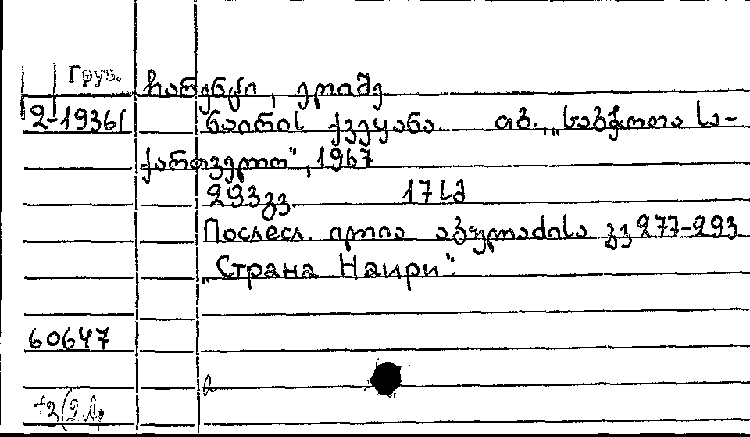 Груз. ჩარენცი, ეღიშე
2-19361 ნაირის ქვეყანა თბ., „საბჭოთა სა-
ქართველო", 1967
293გვ. 17სმ
Послесл. ილია აბულაძისა გვ 277-293
„Страна Наири".
60647